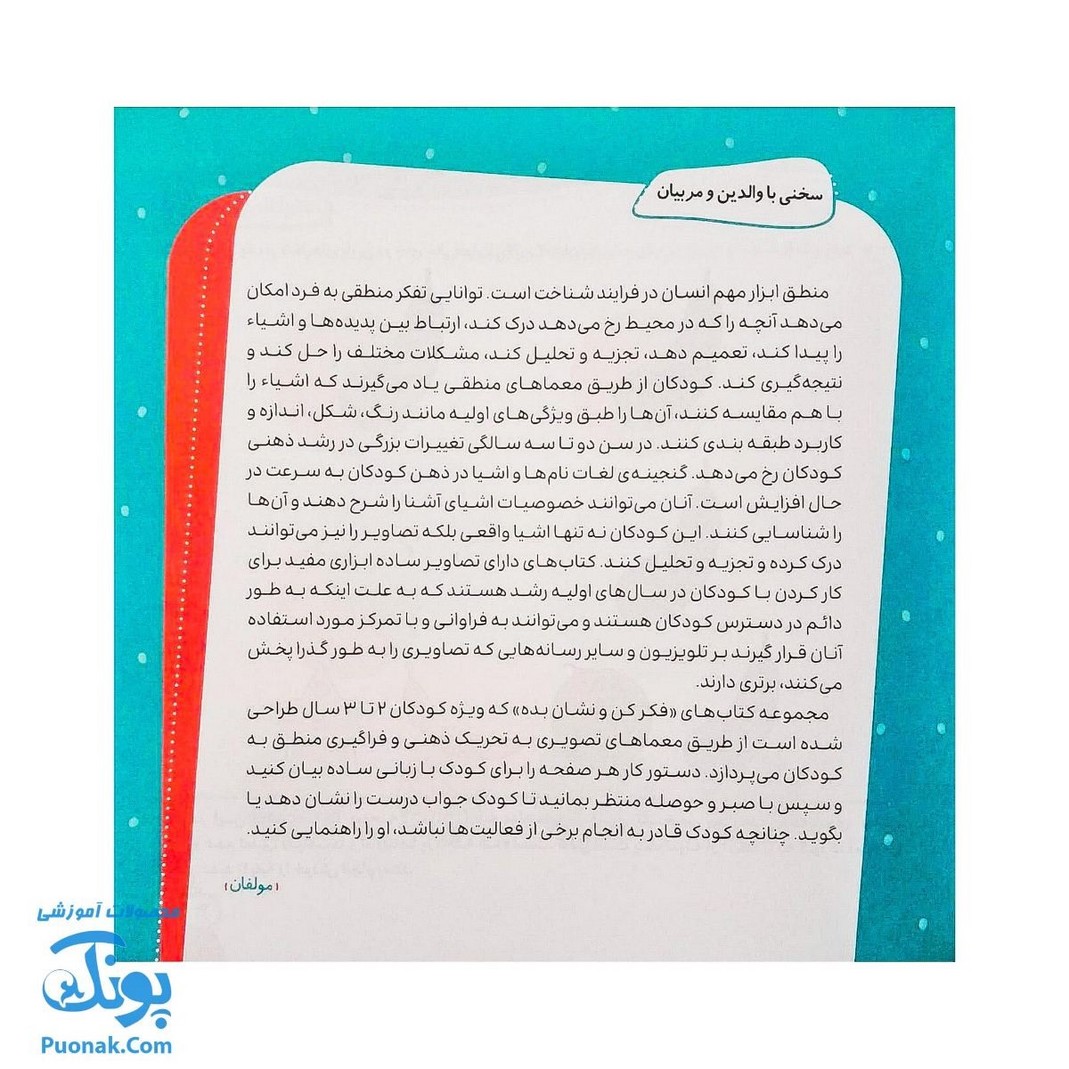 سخنی با والدین و مربیان
منطق ابزار مهم انسان در فرایند شناخت است. توانایی تفکر منطقی به فرد امکان
می‌دهد آنچه را که در محیط رخ می‌دهد درک کند، ارتباط بین پدیده‌ها و اشیاء
را پیدا کند، تعمیم دهد، تجزیه و تحلیل کند، مشکلات مختلف را حل کند و
نتیجه‌گیری کند. کودکان از طریق معماهای منطقی یاد می‌گیرند که اشیاء را
با هم مقایسه کنند، آن‌ها را طبق ویژگی‌های اولیه مانند رنگ، شکل، اندازه و
کاربرد طبقه بندی کنند. در سن دو تا سه سالگی تغییرات بزرگی در رشد ذهنی
کودکان رخ می‌دهد. گنجینه‌ی لغات نام‌ها و اشیا در ذهن کودکان به سرعت در
حال افزایش است. آنان می‌توانند خصوصیات اشیای آشنا را شرح دهند و آن‌ها
را شناسایی کنند. این کودکان نه تنها اشیا واقعی بلکه تصاویر را نیز می‌توانند
درک کرده و تجزیه و تحلیل کنند. کتاب‌های دارای تصاویر ساده ابزاری مفید برای
کار کردن با کودکان در سال‌های اولیه رشد هستند که به علت اینکه به طور
دائم در دسترس کودکان هستند و می‌توانند به فراوانی و با تمرکز مورد استفاده
آنان قرار گیرند بر تلویزیون و سایر رسانه‌هایی که تصاویری را به طور گذرا پخش
می‌کنند، برتری دارند.
مجموعه کتاب‌های «فکر کن و نشان بده» که ویژه کودکان ۲ تا ۳ سال طراحی
شده است از طریق معماهای تصویری به تحریک ذهنی و فراگیری منطق به
کودکان می‌پردازد. دستور کار هر صفحه را برای کودک با زبانی ساده بیان کنید
و سپس با صبر و حوصله منتظر بمانید تا کودک جواب درست را نشان دهد یا
بگوید. چنانچه کودک قادر به انجام برخی از فعالیت‌ها نباشد، او را راهنمایی کنید.
(مولفان)
محصولات آموزشی
پونک
Puonak.Com